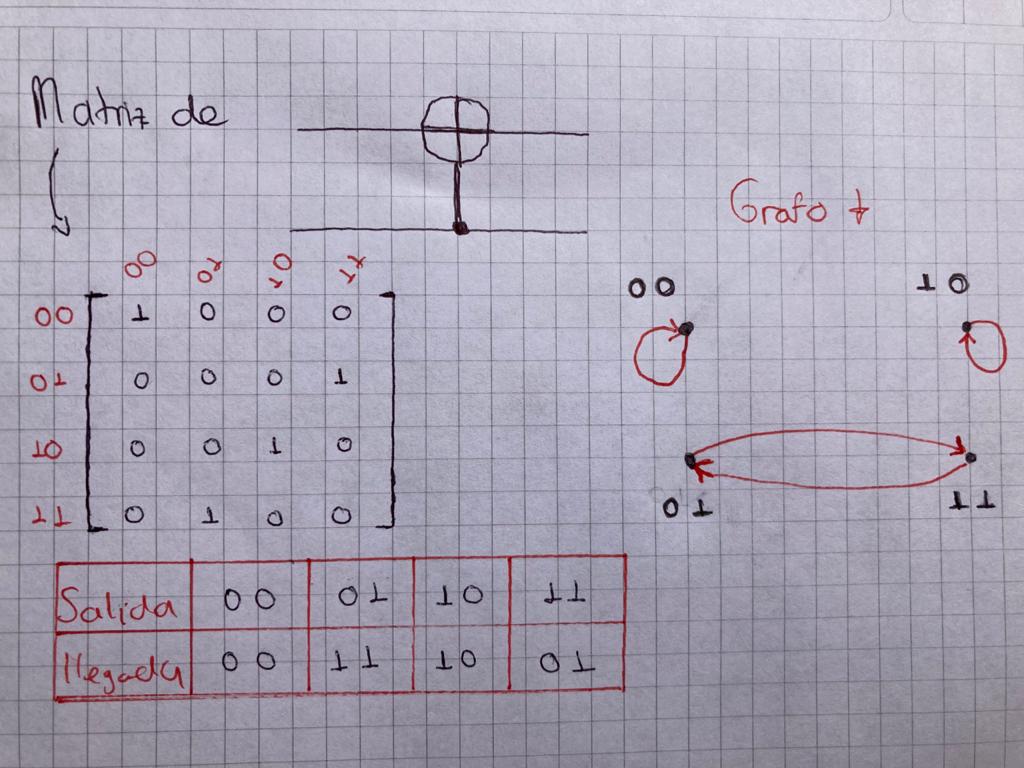 Matriz de
Grafo
00 01 10 11
00 1 0 0 0
01 0 0 0 1
10 0 0 1 0
11 0 1 0 0
00 10
01 11
Salida 00 01 10 11
llegada 00 11 10 01